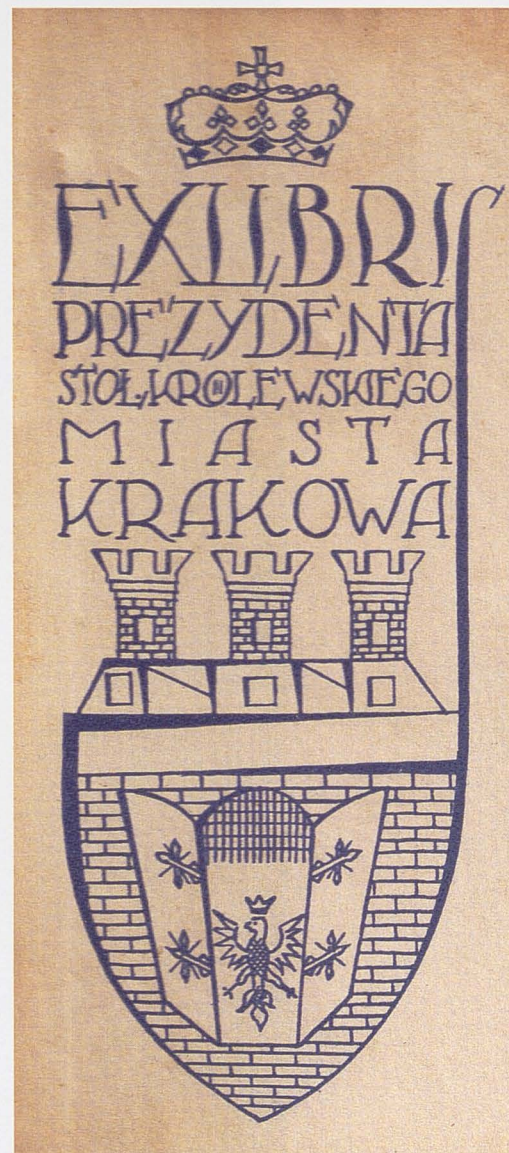 EXLIBRIS
PREZYDENTA
STOŁ.KRÓLEWSKIEGO
MIASTA
KRAKOWA